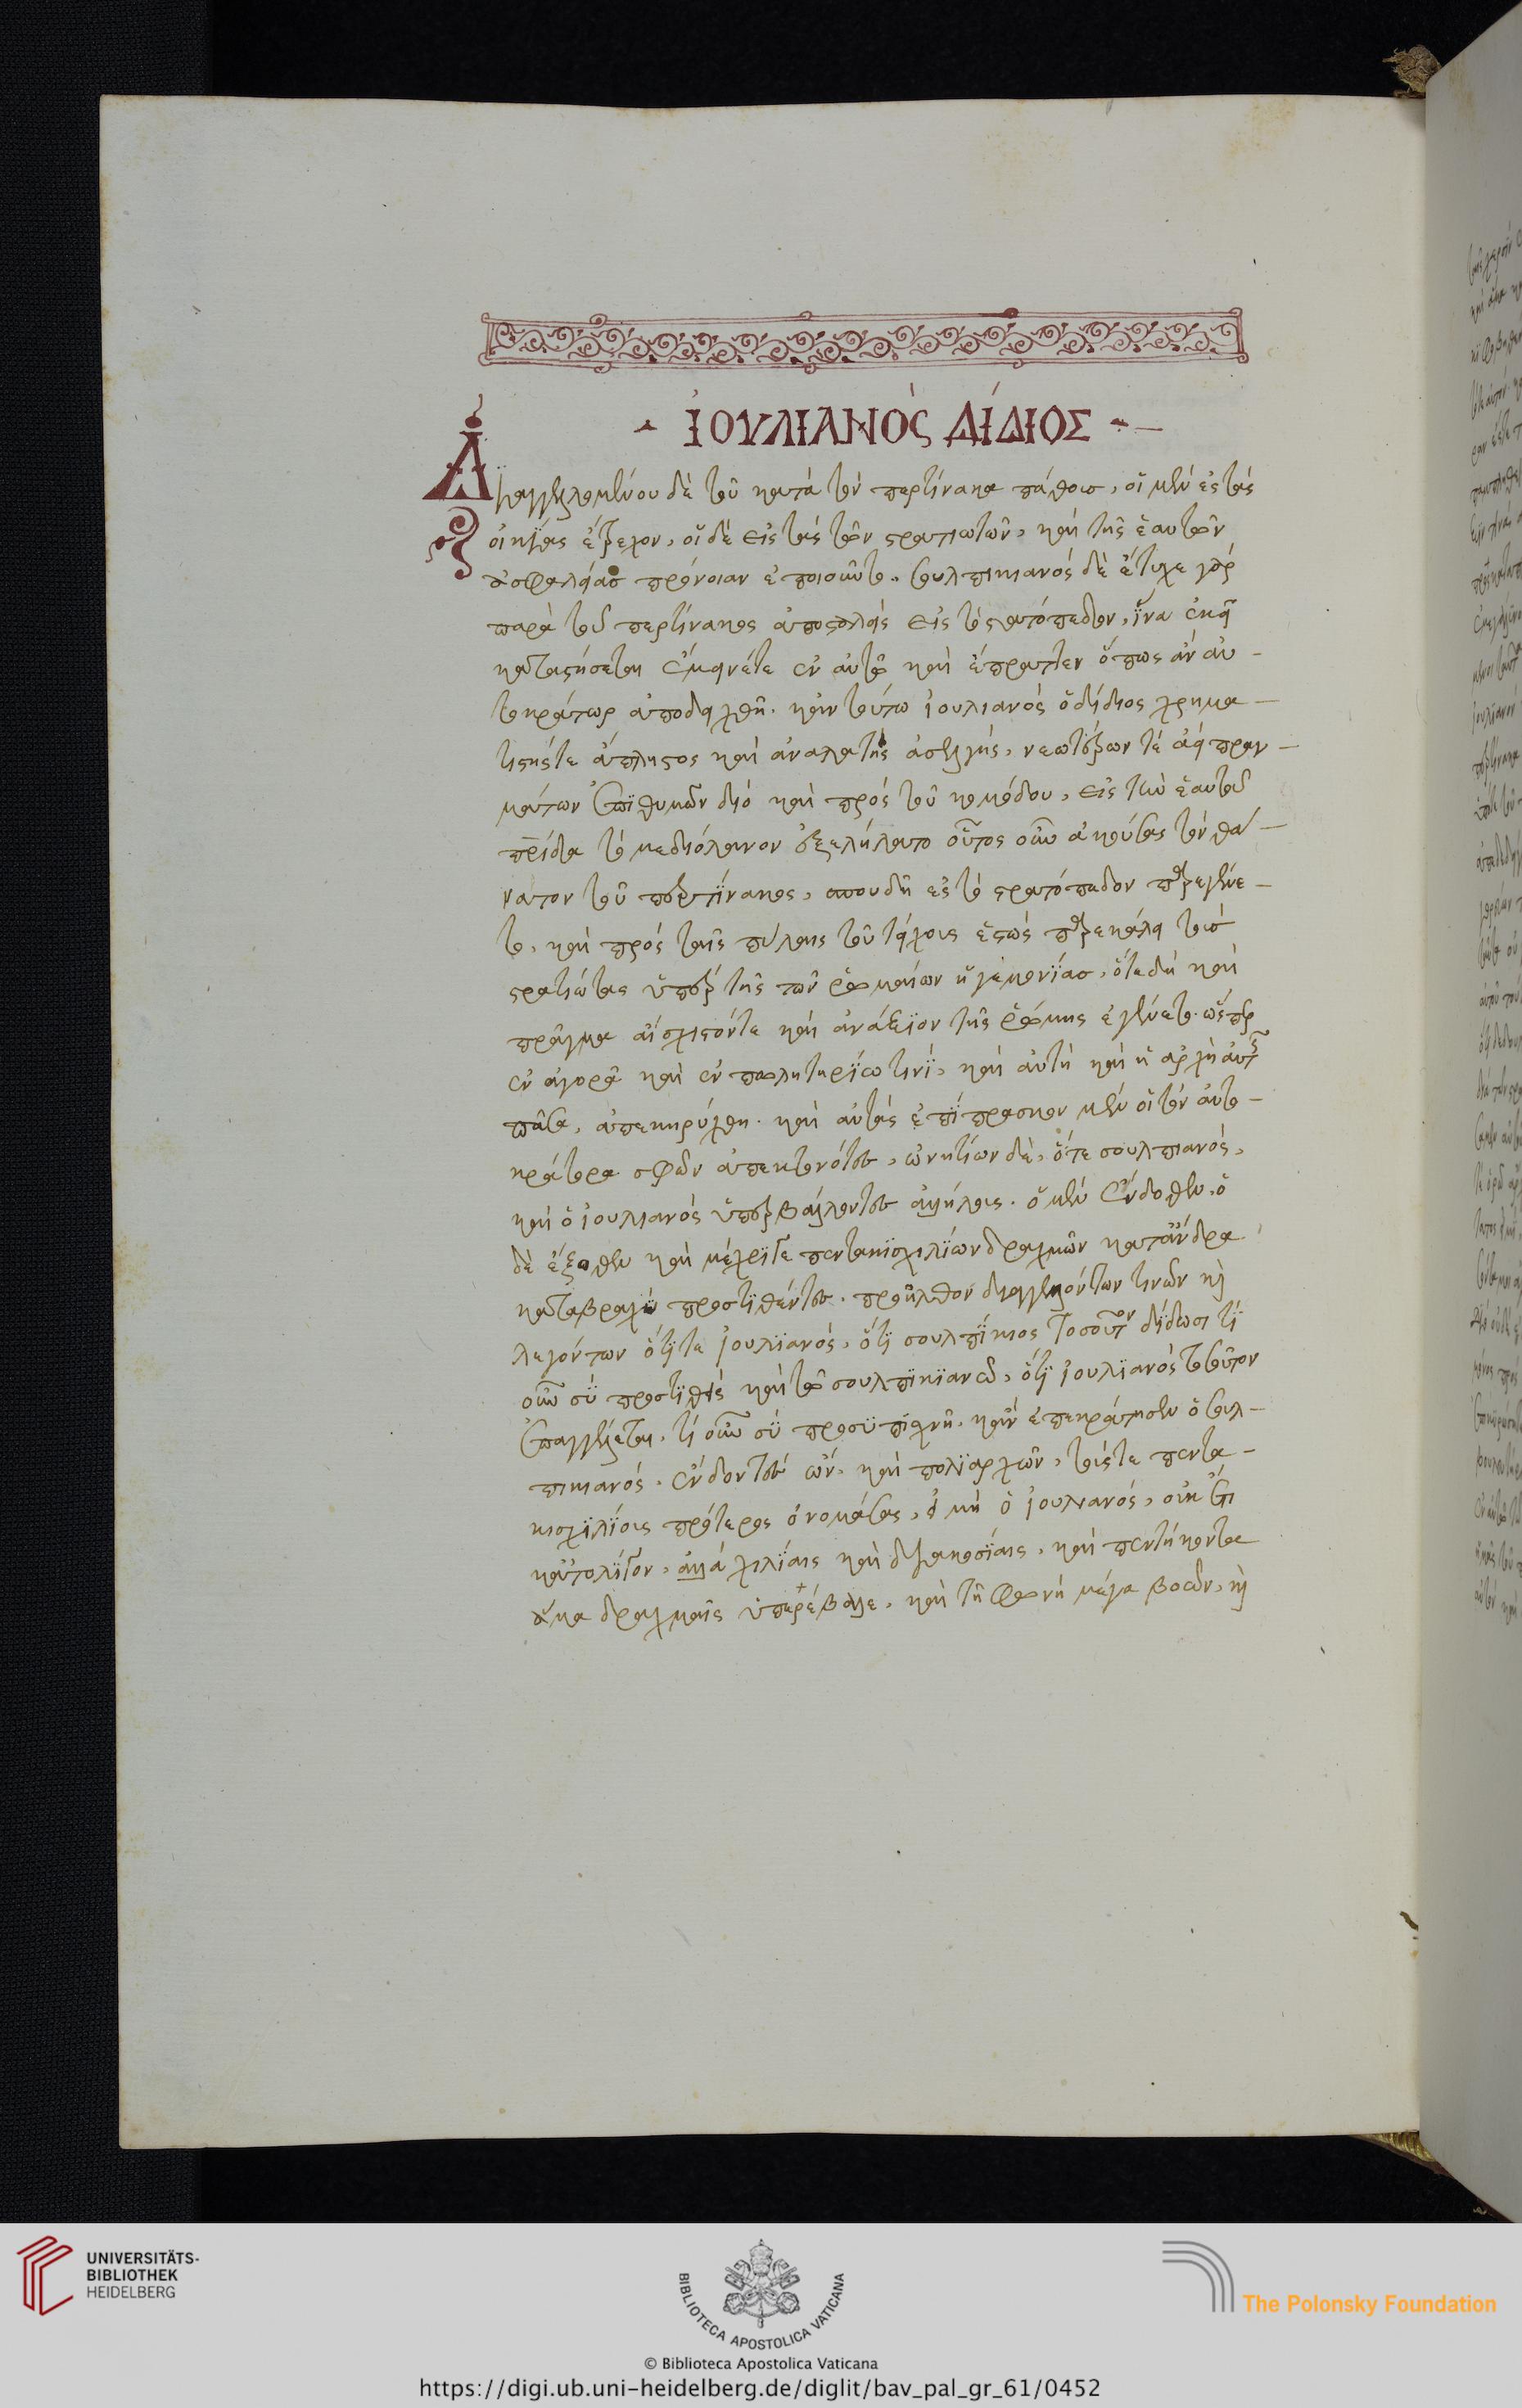 ἸΟΥΛΙΑΝῸΣ ΔΊΔΙΟΣ
Διαγγελομένου δὲ τοῦ κατὰ τὸν περτίνακα πάθους, οἱ μὲν ἐς τὰς
οἰκίας ἔτρεχον, οἱ δὲ εἰς τὰς τῶν στρατιωτῶν, καὶ τῆς ἑαυτῶν
ἀσφαλείας πρόνοιαν ἐποιοῦντο. σουλπικιανὸς δὲ ἔτυχε γὰρ
παρὰ τοῦ περτίνακος ἀποσταλεὶς εἰς τὸ στρατόπεδον, ἵνα ἐκεῖ
καταστήσεται ἔμεινέ τε ἐν αὐτῶ καὶ ἔπραττεν ὅπως ἂν αὐ-
τοκράτωρ ἀποδειχθῆ. κἀν τούτω ἰουλιανὸς ὁ δίδιος χρημα-
τιστής τε ἄπληστος καὶ ἀναλωτὴς ἀσελγής, νεωτέρων τὲ ἀεὶ πραγ-
μάτων ἐπιθυμῶν διὸ καὶ πρὸς τοῦ κομόδου, εἰς τὴν ἑαυτοῦ
πρίδα τὸ μεδιόλανον ἐξελήλατο οὗτος οὖν ἀκούσας τὸν θά-
νατον τοῦ περτίνακος, σπουδῆ ἐς τὸ στρατόπεδον παρεγένε-
το, καὶ πρὸς ταῖς πύλαις τοῦ τείχους ἑστὼς παρεκάλει τοὺς
στρατιώτας ὑπὲρ τῆς τῶν ῥωμαίων ἡγεμονίας. ὅτε δὴ καὶ
πρᾶγμα αἴσχιστόν τε καὶ ἀνάξιον τῆς ῥώμης ἐγένετο. ὥσπερ
ἐν ἀγορᾶ καὶ ἐν πωλητηρίω τινὶ, καὶ αὐτὴ καὶ ἡ ἀρχὴ αὐτῆς
πᾶσα, ἀπεκηρύχθη. καὶ αὐτὰς ἐπίπρασκον μὲν οἱ τὸν αὐτο-
κράτορα σφῶν ἀπεκτονότες, ὠνητίων δὲ, ὅτε σουλπιανός,
καὶ ὁ ἰουλιανὸς ὑπερβάλλοντες ἀλλήλους. ὁ μὲν ἔνδοθεν, ὁ
δὲ ἔξωθεν καὶ μέχρι τε πεντακισχιλίων δραχμῶν κατ' ἄνδρα
καταβραχὺ προστιθέντες. προῆλθον διαγγελλόντων τινῶν καὶ
λεγόντων ὅτι τε ἰουλιανός, ὅτι σουλπίκιος τοσοῦτον δίδωσι τί
οὖν σὺ προστιθεῖς καὶ τῶ σουλπικιανῶ, ὅτι ἰουλιανὸς τοσοῦτον
ἐπαγγέλλεται, τί οὖν σὺ προσϋπισχνῆ. κἂν ἐπεκράτησεν ὁ σουλ-
πικιανός. ἔνδον τὲ ὢν, καὶ πολιαρχῶν, τάς τε πεντα-
κισχιλίους πρότερος ὀνομάσας, εἰ μὴ ὁ ἰουλιανός, οὐκ ἔτι
κατολίγον, ἀλλὰ χιλίαις καὶ διακοσίαις, καὶ πεντήκοντα
ἅμα δραχμαῖς ὑπερέβαλε, καὶ τῆ φωνῆ μέγα βοῶν, καὶ
UNIVERSITÄTS-
BIBLIOTHEK
HEIDELBERG
BIBLIOTECA APOSTOLICA VATICANA
© Biblioteca Apostolica Vaticana
The Polonsky Foundation
https://digi.ub.uni-heidelberg.de/diglit/bav_pal_gr_61/0452